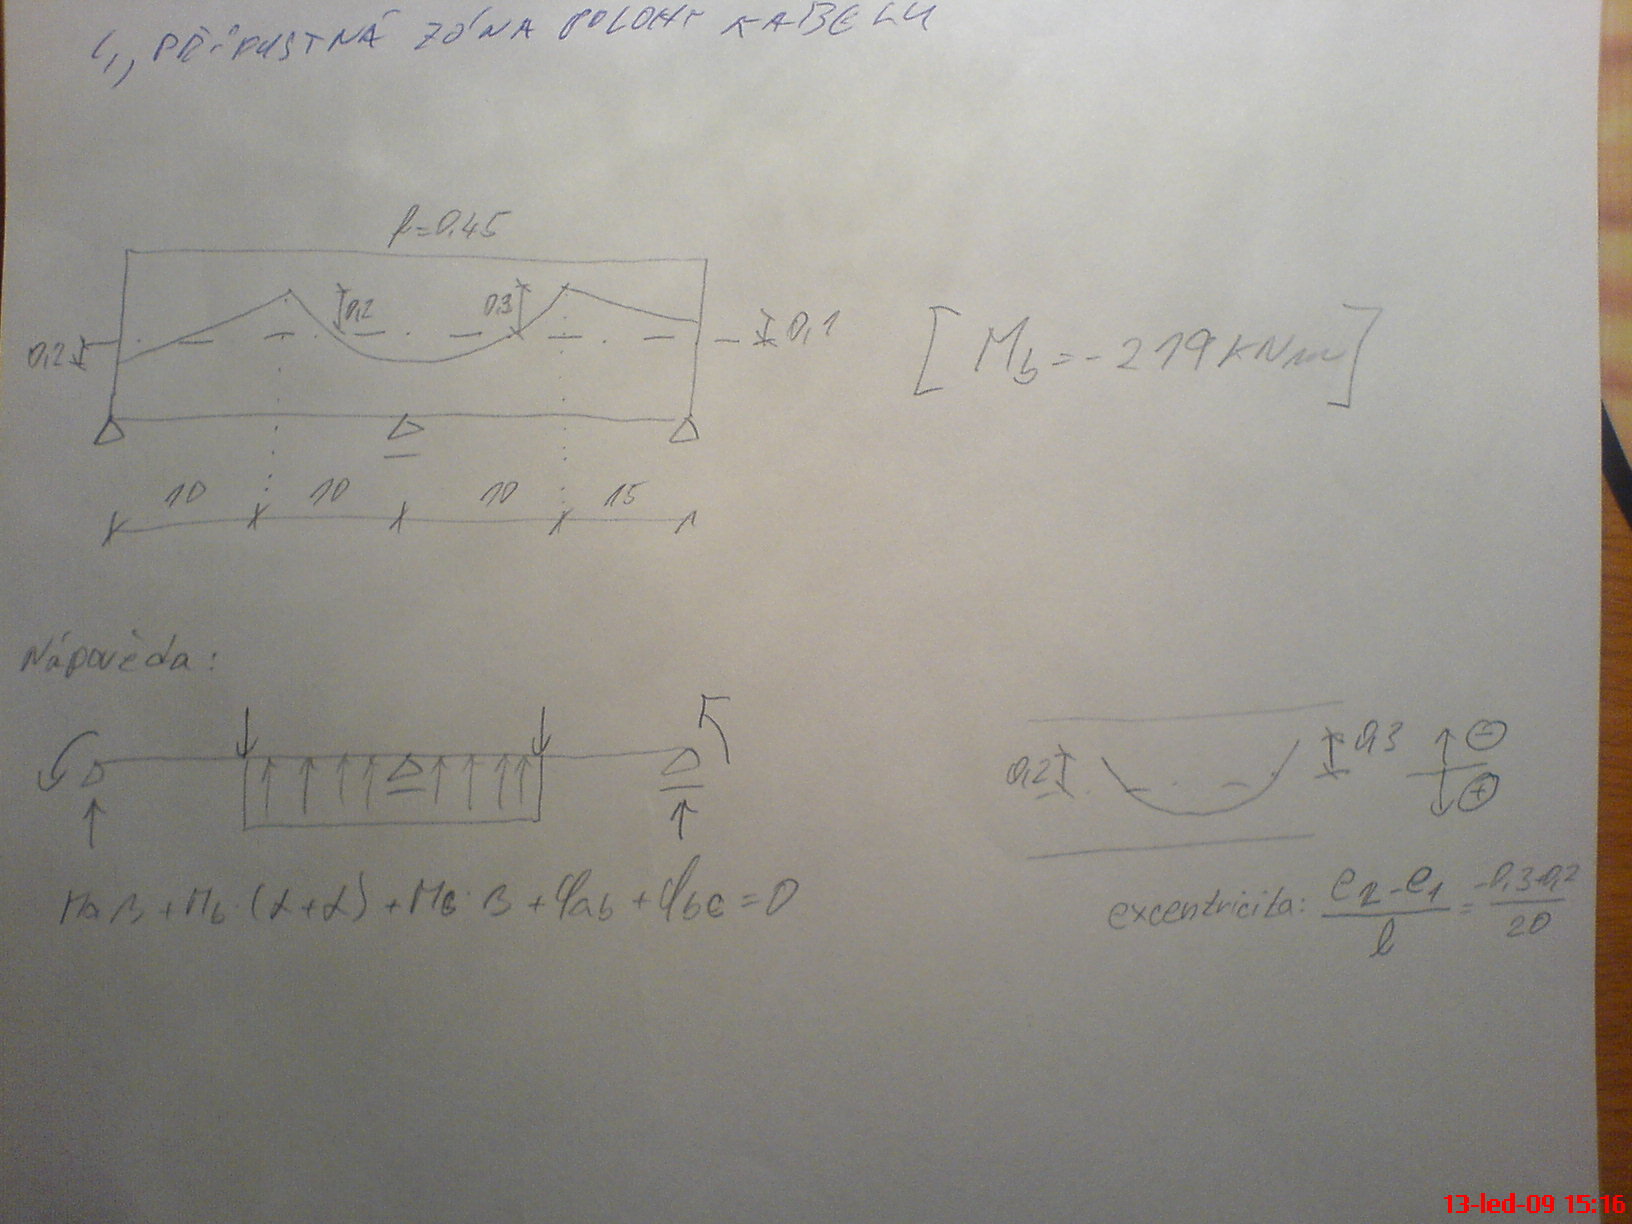 PŘÍPUSTNÁ ZÓNA POLOHY KABELU
f=0,45
0,2
0,3
0,2
0,1
[Mb=-219KNm]
10
10
10
15
Nápověda:
0,2
0,3
-
+
Ma β + Mb · (α+α) + Mc · β + φab + φbc = 0
excentricita: e2-e1 / l = -0,3-0,2 / 20
13-led-09 15:16